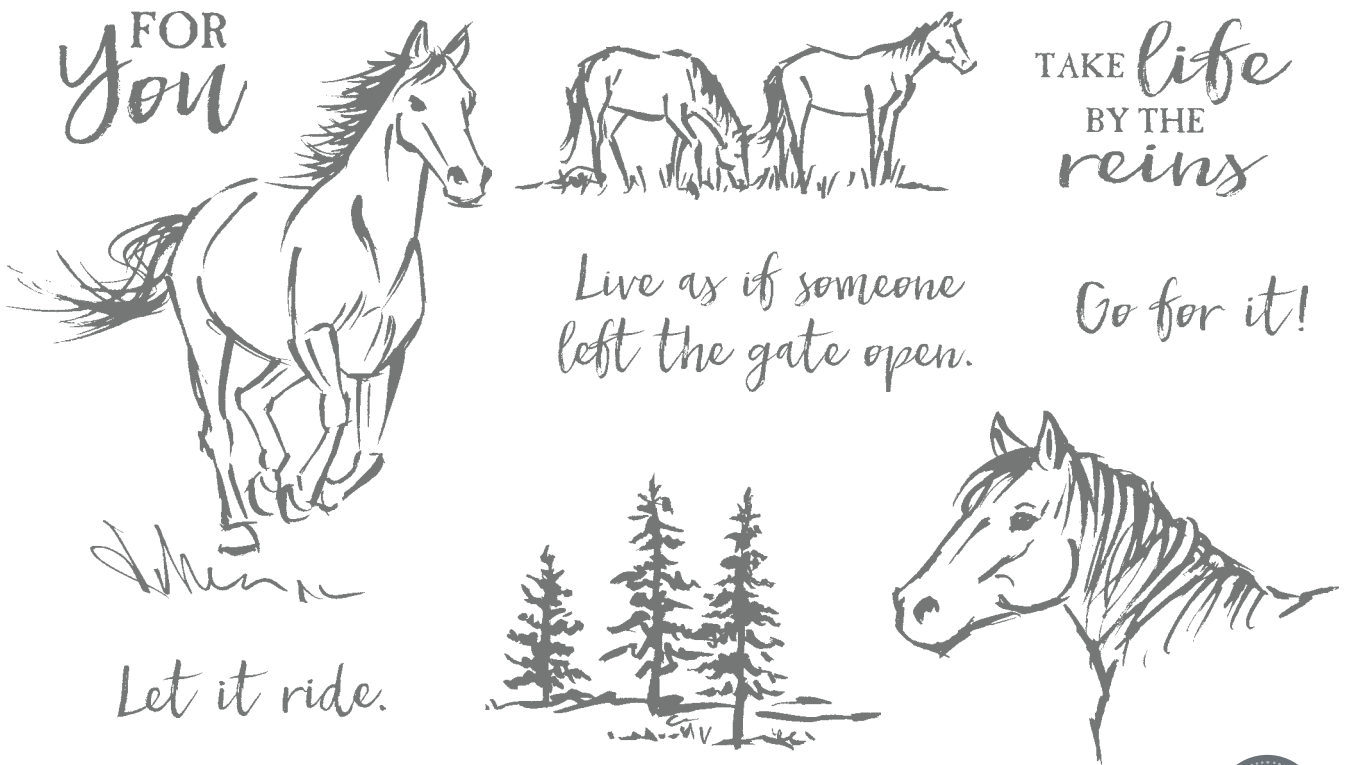 FOR
You
TAKE life
BY THE
reins
Live as if someone
left the gate open.
Go for it!
Let it ride.